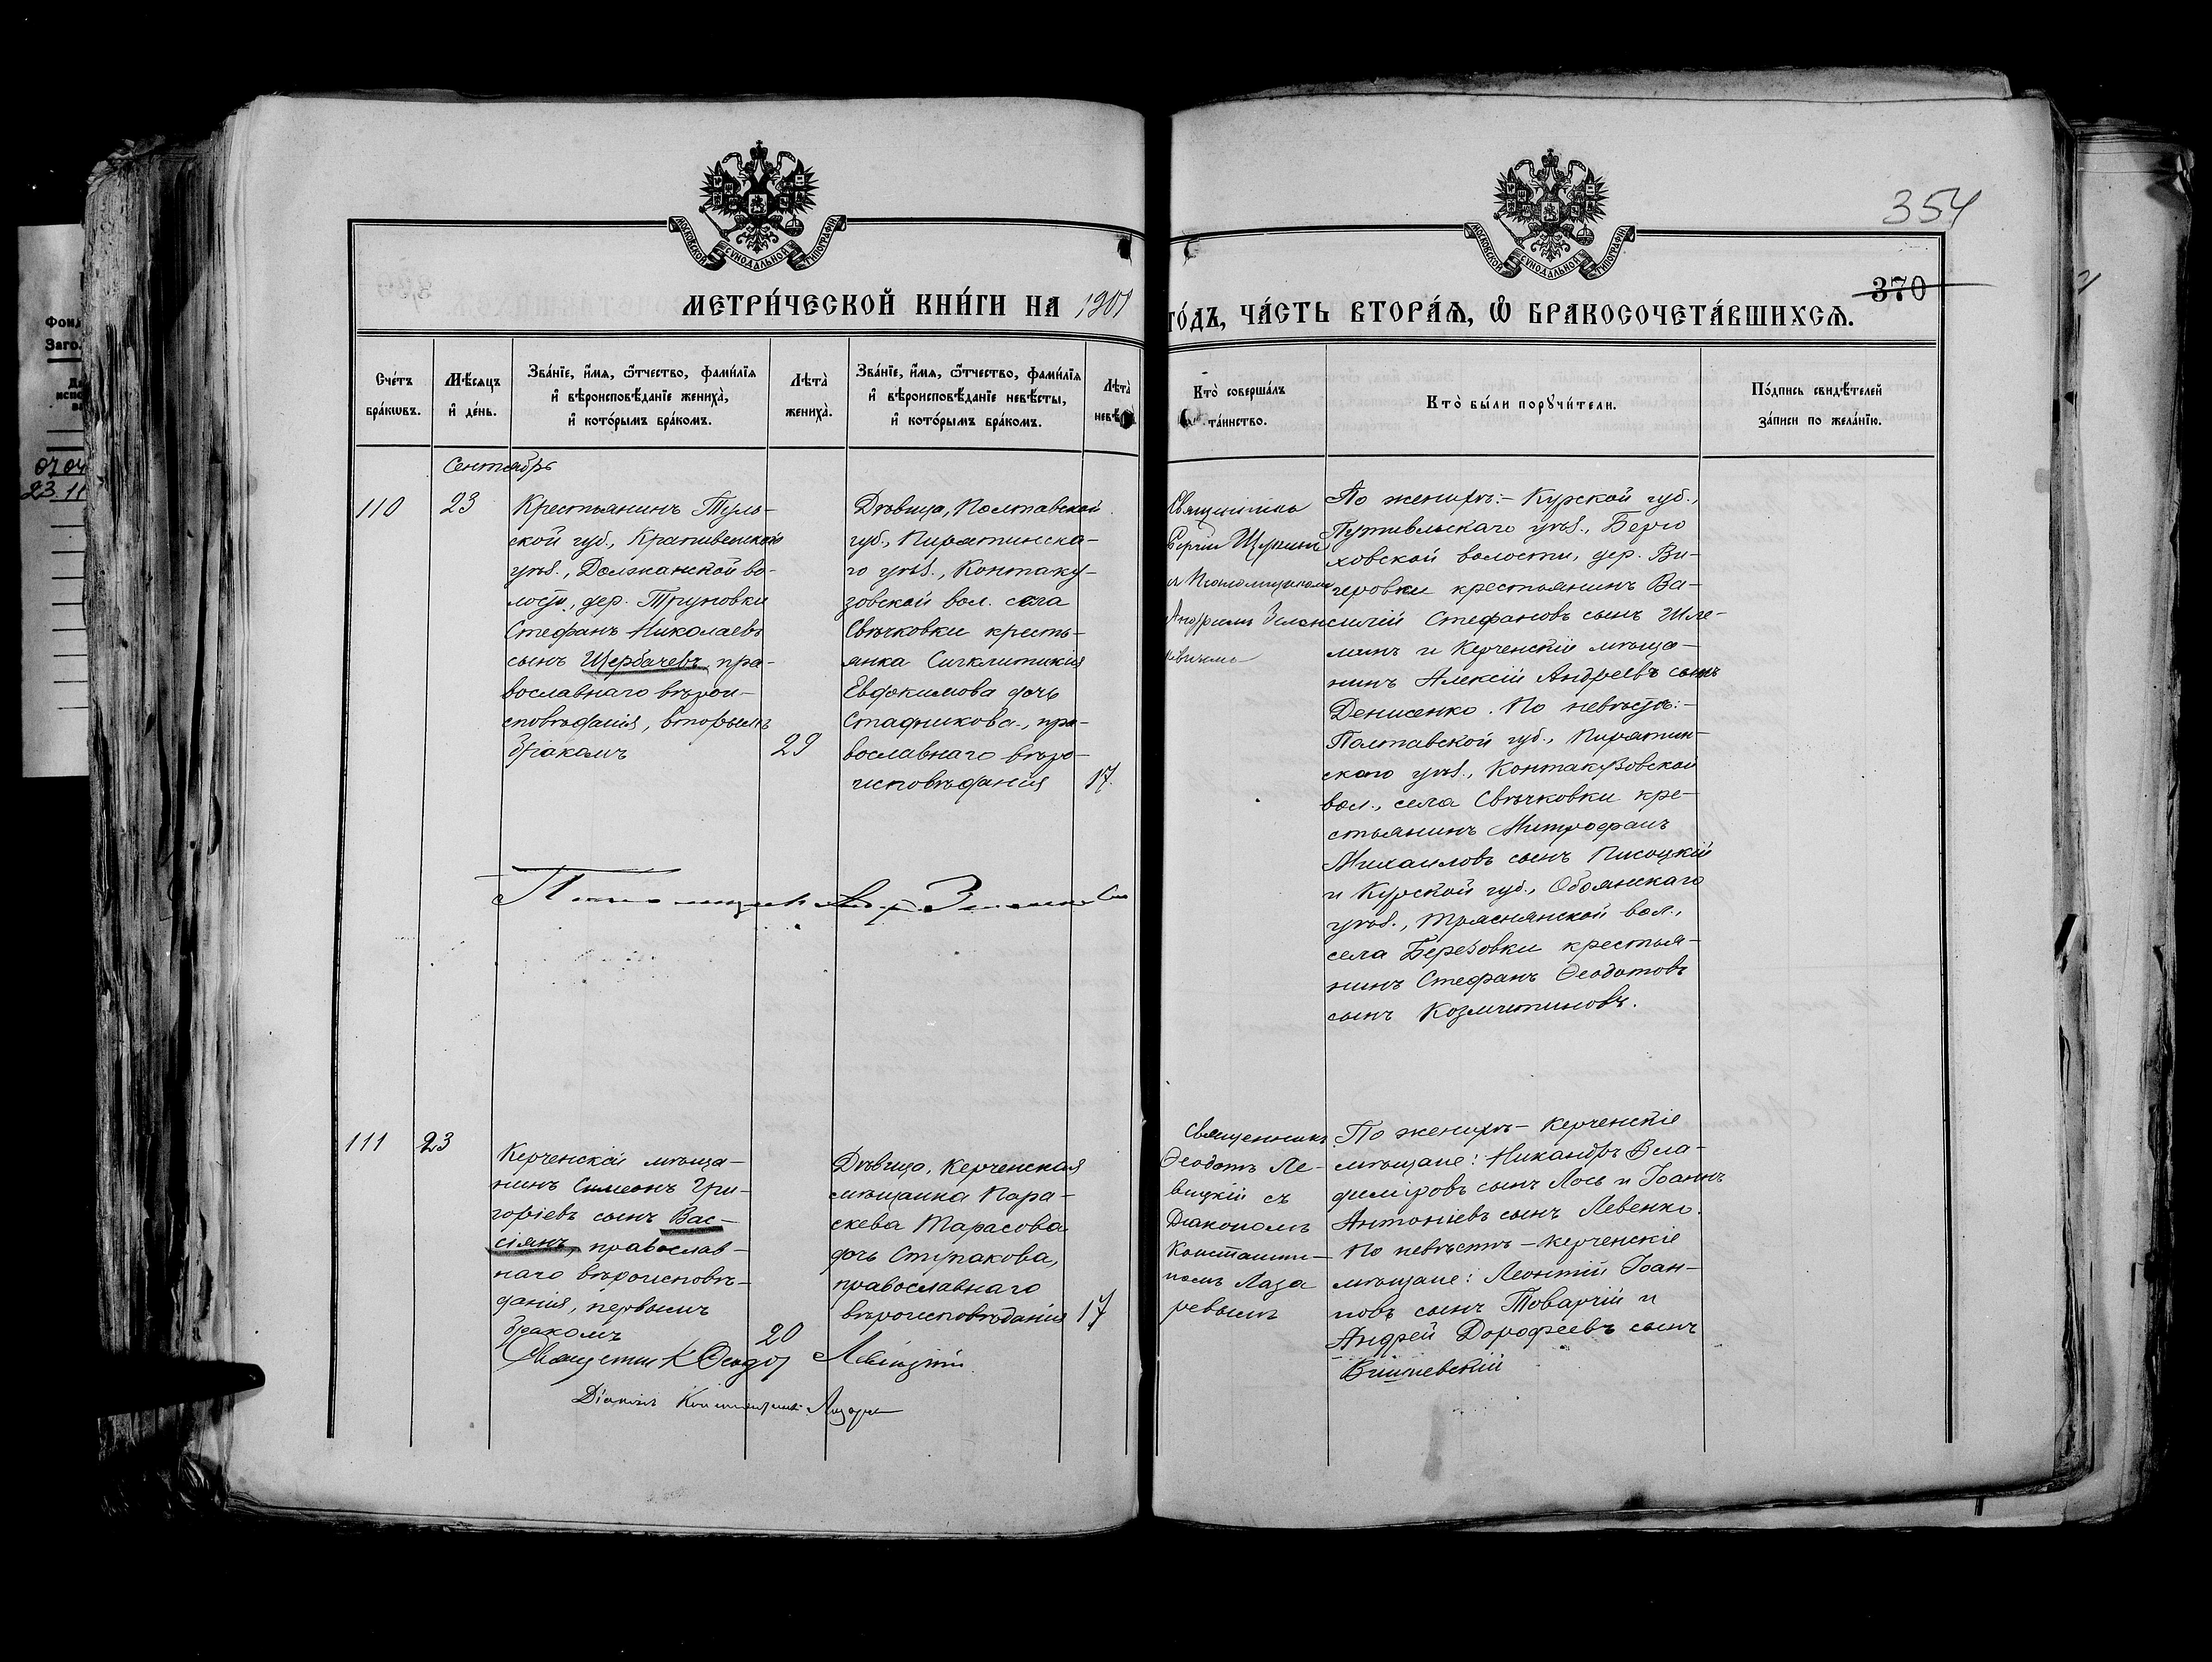 354
370
МОСКОВСКОЙ СѴНОДАЛЬНОЙ ТИПОГРАФІИ
МОСКОВСКОЙ СѴНОДАЛЬНОЙ ТИПОГРАФІИ
МЕТРИ́ЧЕСКОЙ КНИ́ГИ НА 1901
ГО́ДЪ, ЧА́СТЬ ВТОРА́Ѧ, Ѽ БРАКОСОЧЕТА́ВШИХСѦ.
Сче́тъ бра́кωвъ.
Мѣ́сѧцъ и҆ де́нь.
Зва́нїе, и҆́мѧ, ѻ҆́тчество, фамі́лїѧ и҆ вѣроисповѣ́данїе жениха̀, и҆ кото́рымъ бра́комъ.
Лѣта̀ жениха̀.
Зва́нїе, и҆́мѧ, ѻ҆́тчество, фамі́лїѧ и҆ вѣроисповѣ́данїе невѣ́сты, и҆ кото́рымъ бра́комъ.
Лѣта̀
Кто̀ соверша́лъ та́инство.
Кто̀ бы́ли порꙋчи́тели.
По́дпись свидѣ́телей за́писи по жела́нїю.
Фонд
Заго.
07 04
23.11
Сентябрь
110
23
Крестьянинъ Туль-
ской губ., Крапивенскаго
уѣз., Должанской во-
лости, дер. Труновки
Стефанъ Николаевъ
сынъ Щербачевъ, пра-
вославнаго вѣрои-
сповѣданія, вторымъ
бракомъ
29
Дѣвица, Полтавской
губ., Пирятинска-
го уѣз., Контаку-
зовской вол. села
Свѣчковки кресть-
янка Сигклитикія
Евдокимова дочь
Стадникова, пра-
вославнаго вѣро-
исповѣданія
17.
Священникъ
Сергій
и Псаломщикомъ
Андреемъ Зелен
кевичемъ
По женихѣ:- Курской губ.,
Путивльскаго уѣз., Берю
ховской волости, дер. Ви-
геровки крестьянинъ Ва-
силій Стефановъ сынъ Шле-
минъ и Керченскій мѣща-
нинъ Алексій Андреевъ сынъ
Денисенко. По невѣстѣ:-
Полтавской губ., Пирятин-
скаго уѣз., Контакузовской
вол., села Свѣчковки кре-
стьянинъ Митрофанъ
Михаиловъ сынъ Писоцкій
и Курской губ., Обоянскаго
уѣз., Краснянской вол.,
села Березовки крестья-
нинъ Стефанъ Ѳеодотовъ
сынъ
Псаломщикъ
111
23
Керченскій мѣща-
нинъ Симеонъ Гри-
горіевъ сынъ Вас-
сіянъ, православ-
наго вѣроисповѣ-
данія, первымъ
бракомъ
20
Дѣвица, Керченская
мѣщанка Пара-
скева Тарасова
дочь Ступакова,
православнаго
вѣроисповѣданія
17
Священникъ
Ѳеодотъ Ле-
вицкій съ
Діакономъ
Константи-
номъ Лаза
ревымъ
По женихѣ - Керченскіе
мѣщане: Никандръ Вла-
диміровъ сынъ Лось и Іоаннъ
Антоніевъ сынъ Левенко.
По невѣстѣ - Керченскіе
мѣщане: Леонтій Іоан-
новъ сынъ Товарчій и
Андрей Дорофеевъ сынъ
Вишневскій
Священникъ Ѳеодотъ Левицкій
Діаконъ Константинъ Лазаре